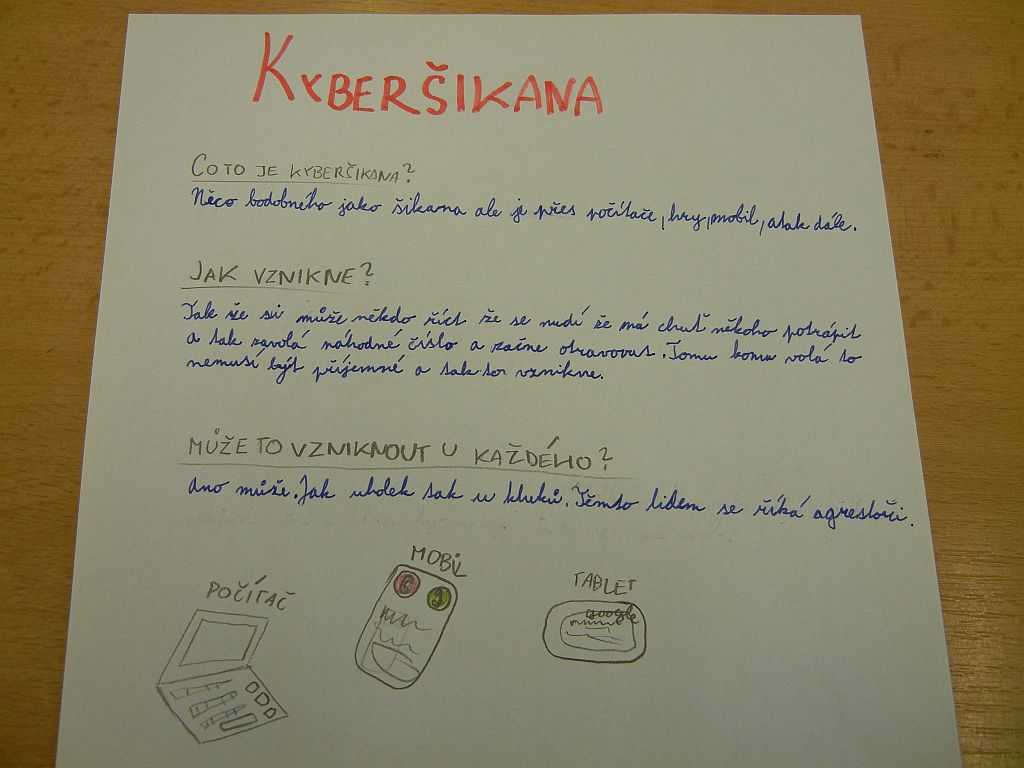 KYBERŠIKANA
CO TO JE KYBERČIKANA?
Něco bodobného jako šikana ale je přes počítače, hry, mobil, atak dále.
JAK VZNIKNE?
Tak že si může někdo říct že se nudí že má chuť někoho potrápit
a tak zavolá náhodné číslo a začne otravovat. Tomu komu volá to
nemusí být příjemné a tak to vznikne.
MŮŽE TO VZNIKNOUT U KAŽDÉHO?
Ano může. Jak uholek tak u kluků. Těmto lidem se říká agresloři.
MOBIL
TABLET
POČÍTAČ
google